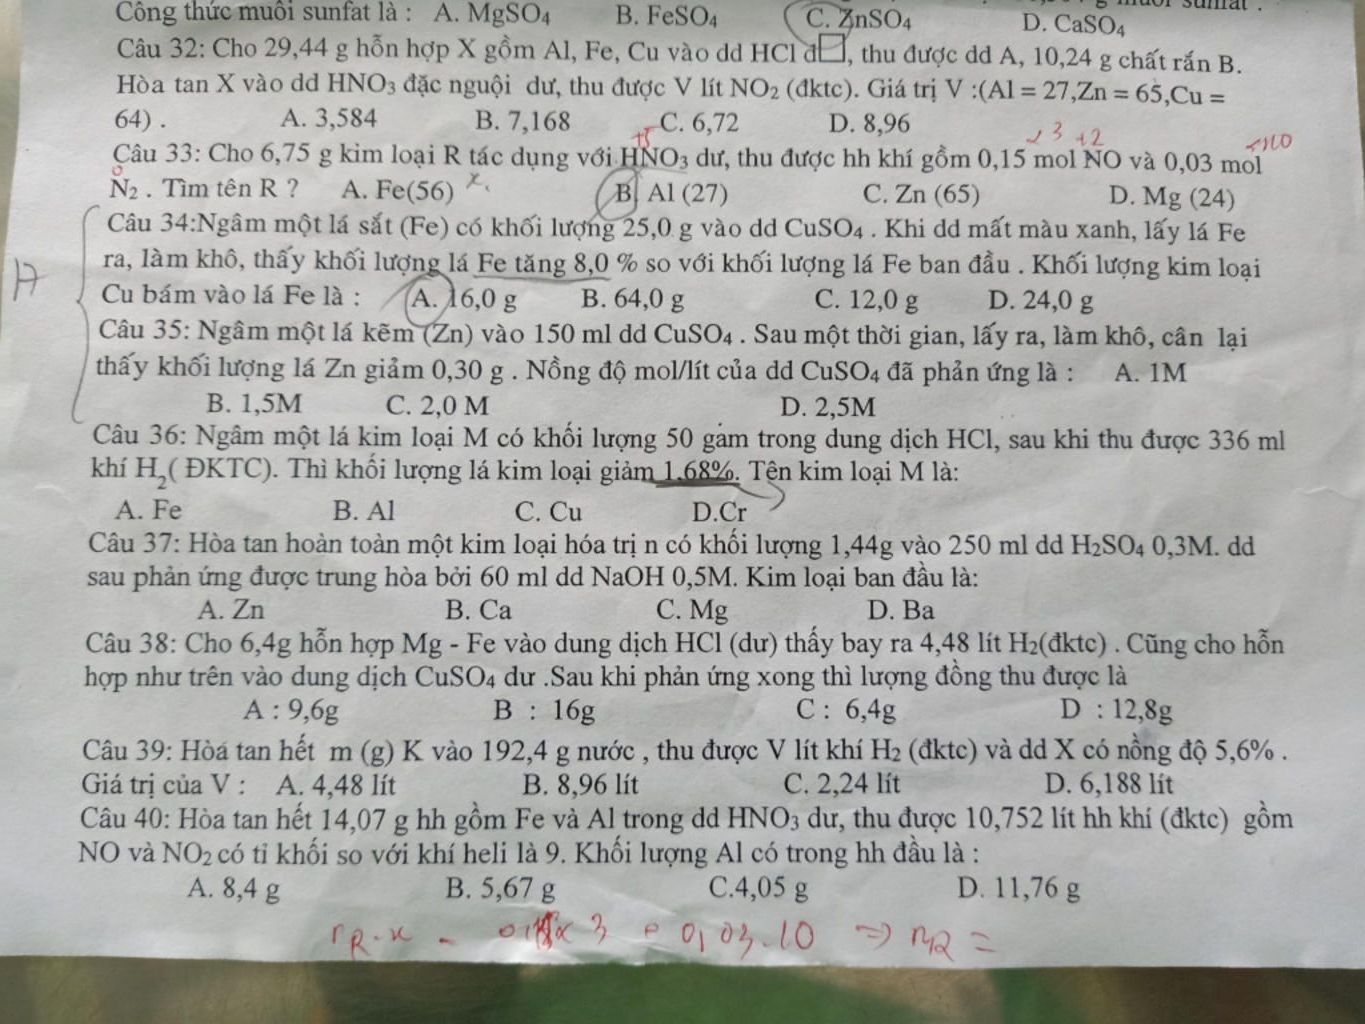 Công thức muối sunfat là : A. MgSO₄ B. FeSO₄ C. ZnSO₄ D. CaSO₄
Câu 32: Cho 29,44 g hỗn hợp X gồm Al, Fe, Cu vào dd HCl đ□, thu được dd A, 10,24 g chất rắn B.
Hòa tan X vào dd HNO₃ đặc nguội dư, thu được V lít NO₂ (đktc). Giá trị V :(Al = 27,Zn = 65,Cu =
64) . A. 3,584 B. 7,168 C. 6,72 D. 8,96
+5 +3 +2
Câu 33: Cho 6,75 g kim loại R tác dụng với HNO₃ dư, thu được hh khí gồm 0,15 mol NO và 0,03 mol
N₂ . Tìm tên R ? A. Fe(56) x. B. Al (27) C. Zn (65) D. Mg (24)
Câu 34:Ngâm một lá sắt (Fe) có khối lượng 25,0 g vào dd CuSO₄ . Khi dd mất màu xanh, lấy lá Fe
ra, làm khô, thấy khối lượng lá Fe tăng 8,0 % so với khối lượng lá Fe ban đầu . Khối lượng kim loại
Cu bám vào lá Fe là : A. 16,0 g B. 64,0 g C. 12,0 g D. 24,0 g
Câu 35: Ngâm một lá kẽm (Zn) vào 150 ml dd CuSO₄ . Sau một thời gian, lấy ra, làm khô, cân lại
thấy khối lượng lá Zn giảm 0,30 g . Nồng độ mol/lít của dd CuSO₄ đã phản ứng là : A. 1M
B. 1,5M C. 2,0 M D. 2,5M
Câu 36: Ngâm một lá kim loại M có khối lượng 50 gam trong dung dịch HCl, sau khi thu được 336 ml
khí H₂( ĐKTC). Thì khối lượng lá kim loại giảm 1,68%. Tên kim loại M là:
A. Fe B. Al C. Cu D.Cr
Câu 37: Hòa tan hoàn toàn một kim loại hóa trị n có khối lượng 1,44g vào 250 ml dd H₂SO₄ 0,3M. dd
sau phản ứng được trung hòa bởi 60 ml dd NaOH 0,5M. Kim loại ban đầu là:
A. Zn B. Ca C. Mg D. Ba
Câu 38: Cho 6,4g hỗn hợp Mg - Fe vào dung dịch HCl (dư) thấy bay ra 4,48 lít H₂(đktc) . Cũng cho hỗn
hợp như trên vào dung dịch CuSO₄ dư .Sau khi phản ứng xong thì lượng đồng thu được là
A : 9,6g B : 16g C : 6,4g D : 12,8g
Câu 39: Hòá tan hết m (g) K vào 192,4 g nước , thu được V lít khí H₂ (đktc) và dd X có nồng độ 5,6% .
Giá trị của V : A. 4,48 lít B. 8,96 lít C. 2,24 lít D. 6,188 lít
Câu 40: Hòa tan hết 14,07 g hh gồm Fe và Al trong dd HNO₃ dư, thu được 10,752 lít hh khí (đktc) gồm
NO và NO₂ có tỉ khối so với khí heli là 9. Khối lượng Al có trong hh đầu là :
A. 8,4 g B. 5,67 g C.4,05 g D. 11,76 g
x 3 0,03.10 ⇒ nR =